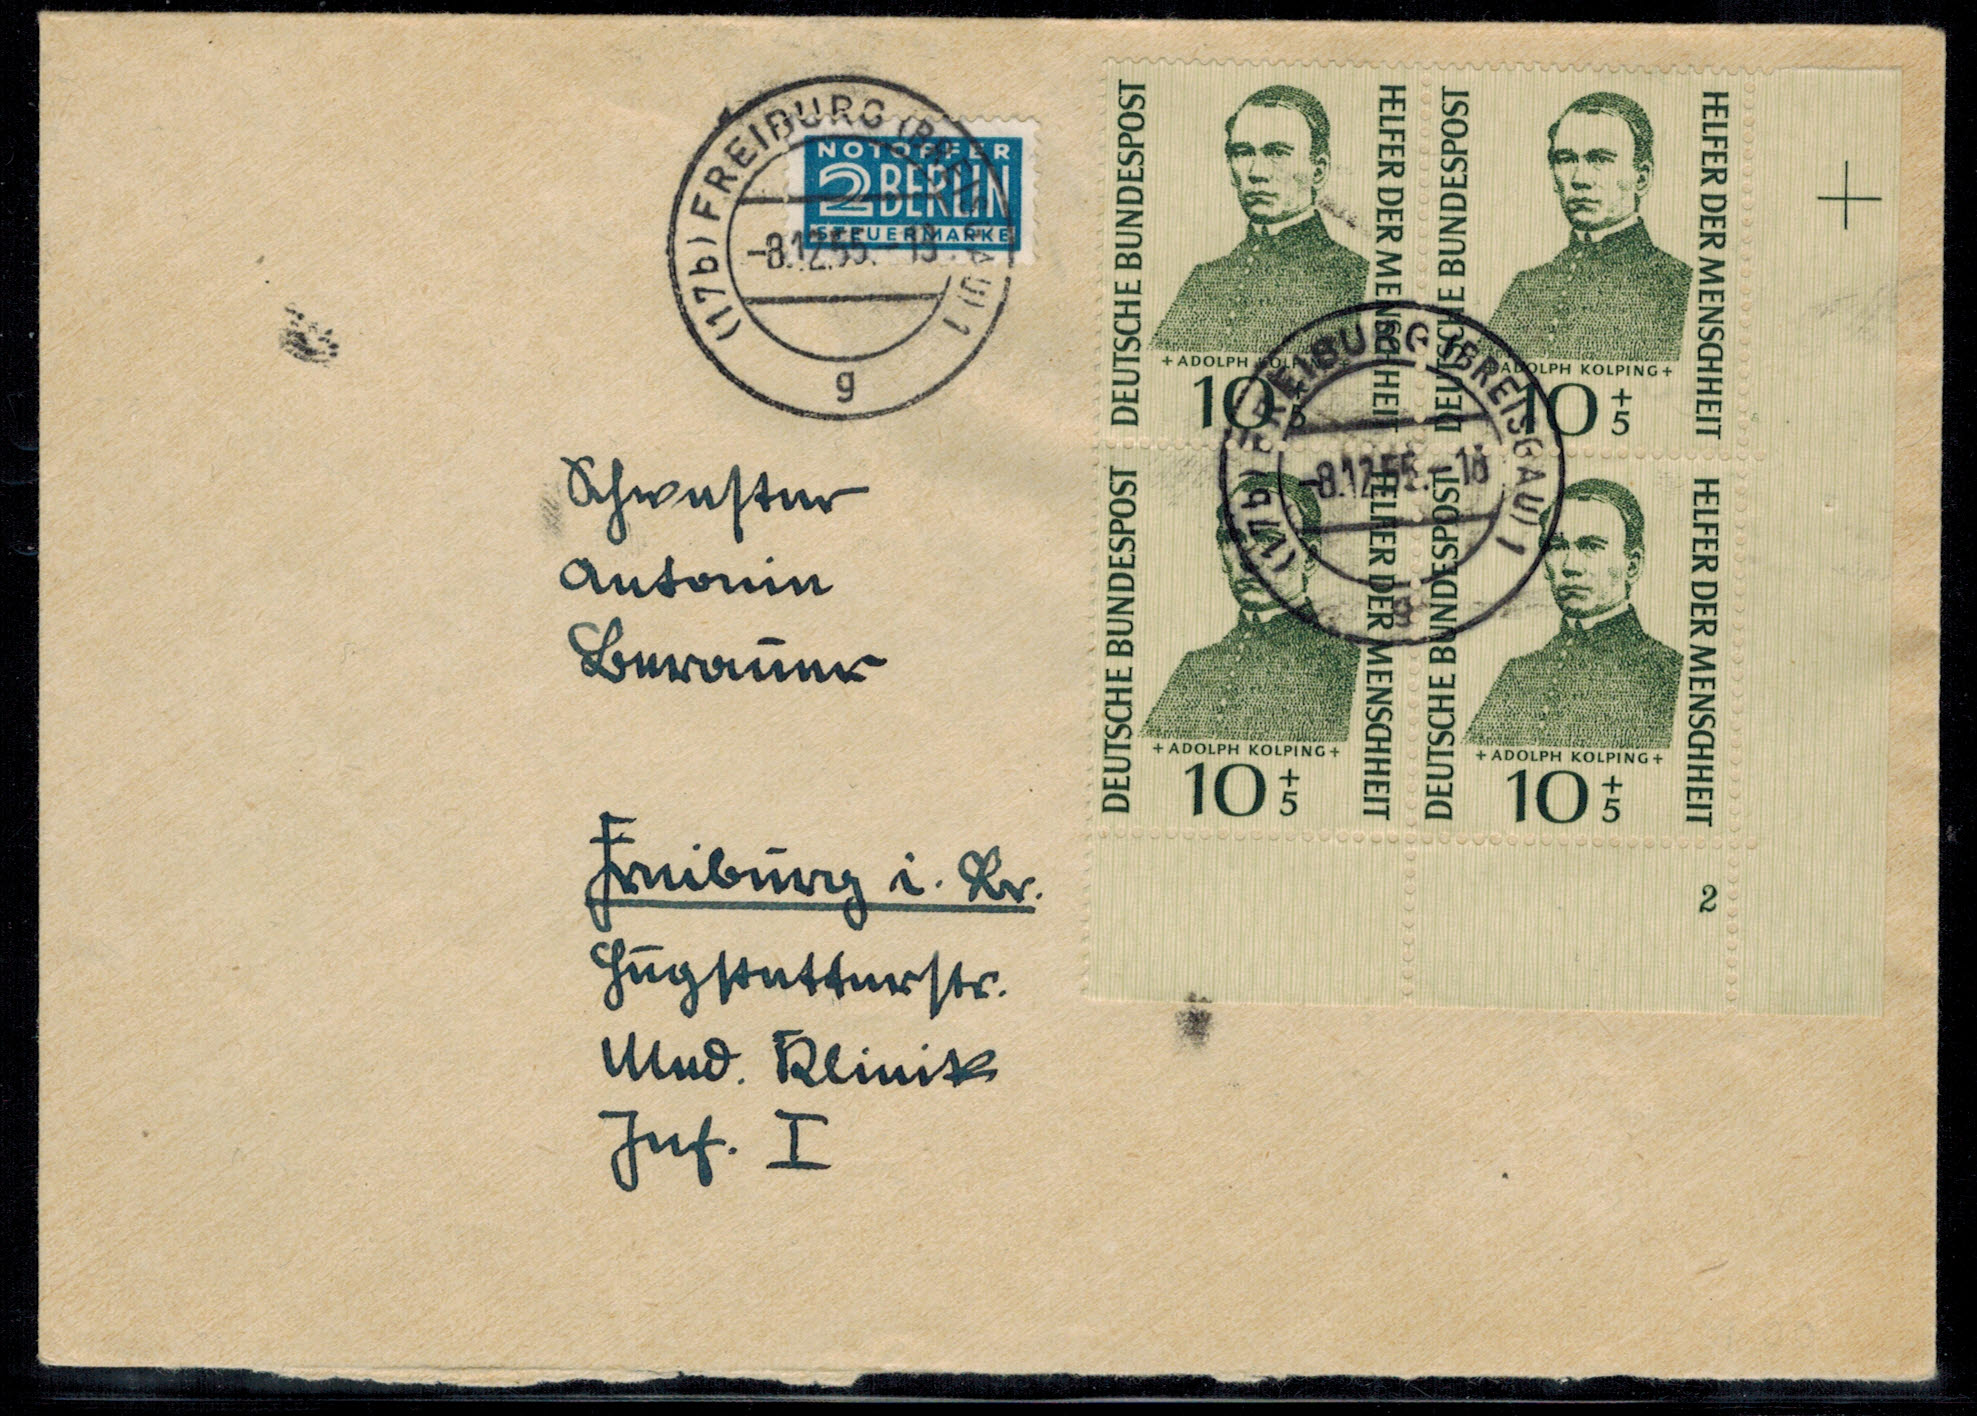 (17b) FREIBURG (BREISGAU) 1
-8.12.55.-18
g
NOTOPFER
2 BERLIN
STEUERMARKE
DEUTSCHE BUNDESPOST
HELFER DER MENSCHHEIT
+ ADOLPH KOLPING +
10 + 5
DEUTSCHE BUNDESPOST
HELFER DER MENSCHHEIT
+ ADOLPH KOLPING +
10 + 5
(17b) FREIBURG (BREISGAU) 1
-8.12.55.-18
g
DEUTSCHE BUNDESPOST
HELFER DER MENSCHHEIT
+ ADOLPH KOLPING +
10 + 5
DEUTSCHE BUNDESPOST
HELFER DER MENSCHHEIT
+ ADOLPH KOLPING +
10 + 5
2
Schwester
Antonin
Berauer
Freiburg i. Br.
Hugstetterstr.
Med. Klinik
Inf. I